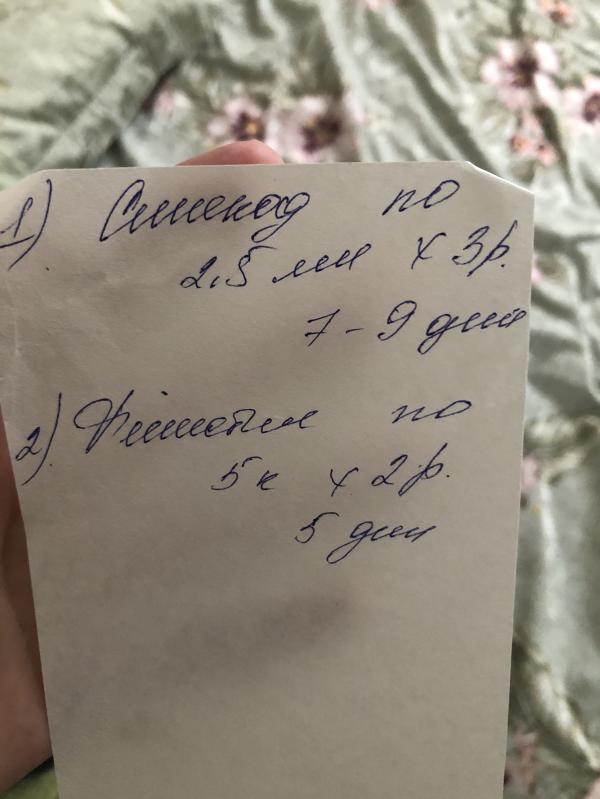 1) Синекод по
2,5 мл х 3р.
7-9 дней
2) Фенистил по
5к х 2р.
5 дней